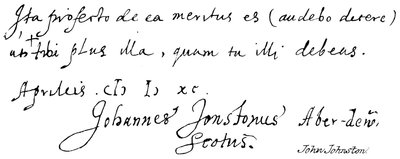 Ita profecto de ea meritus es (audebo dicere)
uti tibi plus illa, quam tu illi debeas.
Aprileis. CIↃ IↃ XC.
Johannes Jonstonus Aber-den̄.
Scotus.
John Johnston.